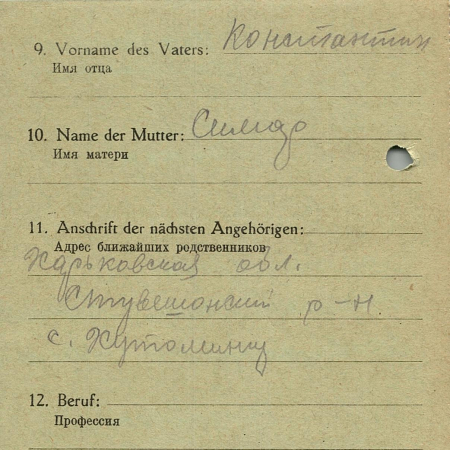 9. Vorname des Vaters: Константин
Имя отца
10. Name der Mutter:
Имя матери
11. Anschrift der nächsten Angehörigen:
Адрес ближайших родственников
Харьковская обл.
р-н
с.
12. Beruf:
Профессия